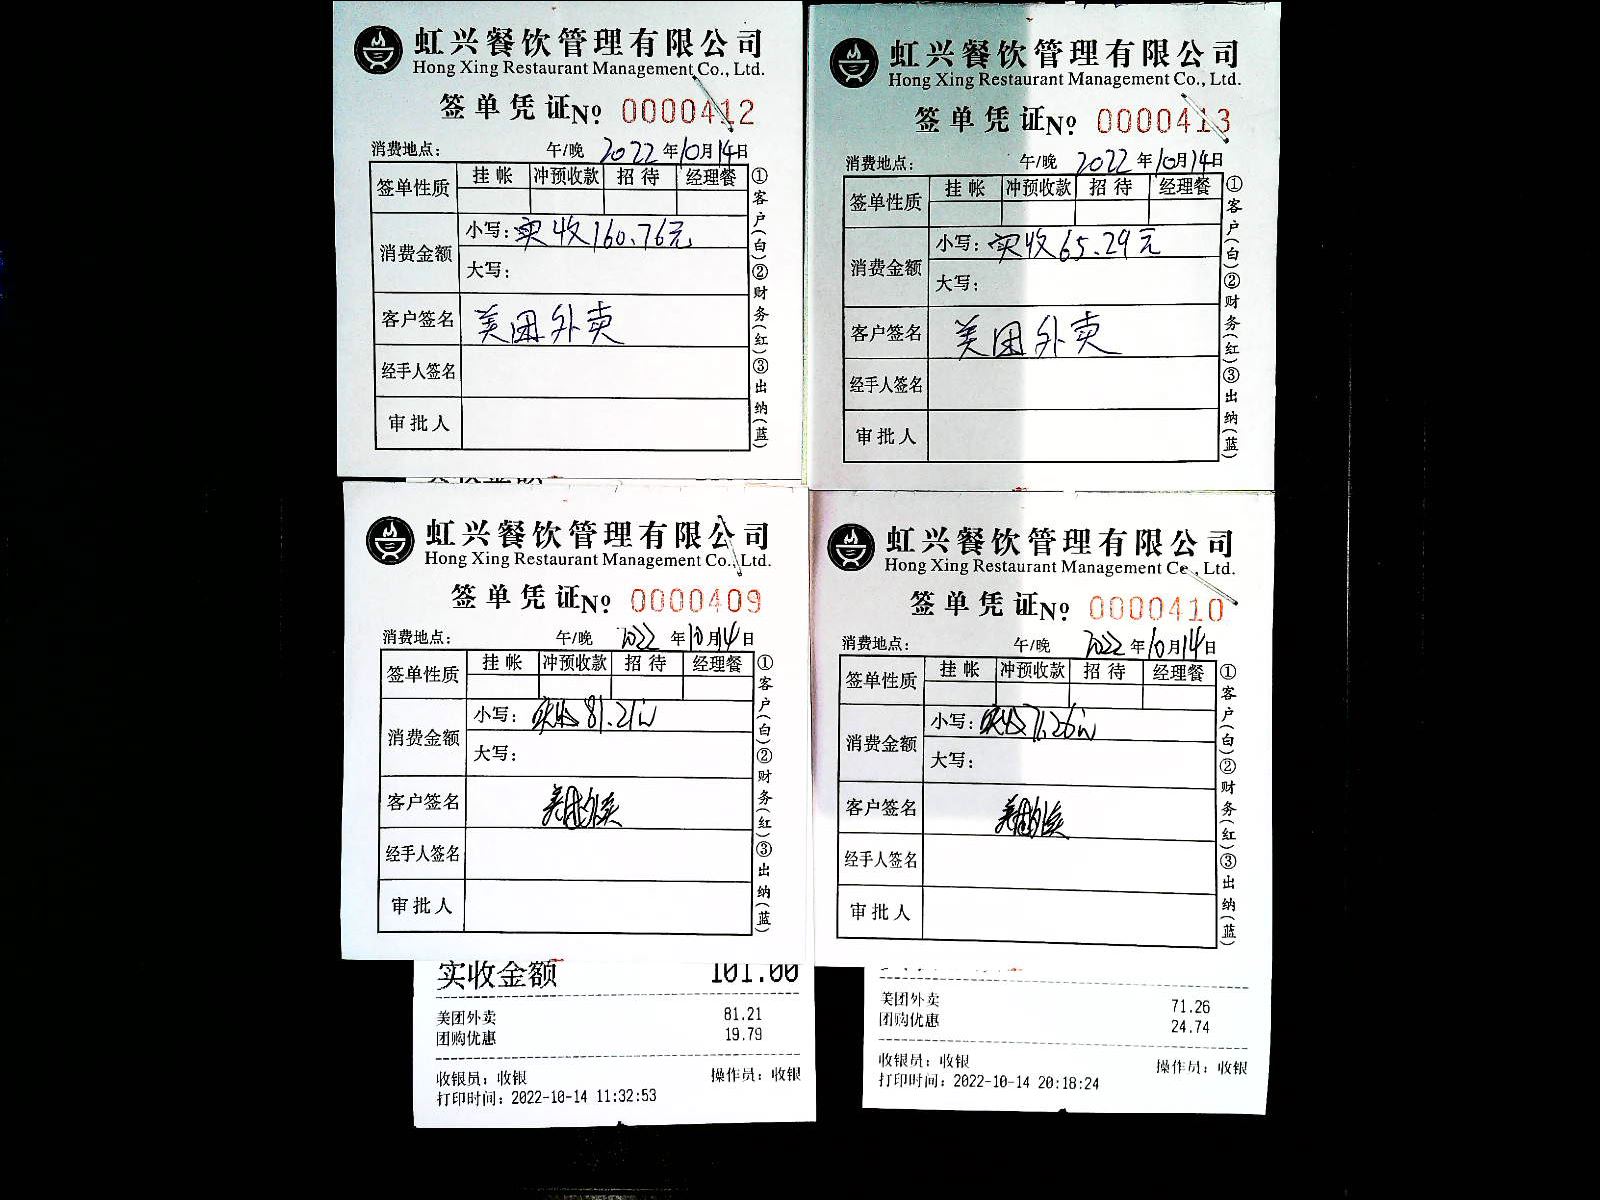 虹兴餐饮管理有限公司
Hong Xing Restaurant Management Co., Ltd.
签单凭证No 0000412
消费地点: 午/晚 2022年10月14日
签单性质 挂帐 冲预收款 招待 经理餐
消费金额 小写:实收160.76元
大写:
客户签名 美团外卖
经手人签名
审批人
①客户(白)②财务(红)③出纳(蓝)
虹兴餐饮管理有限公司
Hong Xing Restaurant Management Co., Ltd.
签单凭证No 0000413
消费地点: 午/晚 2022年10月14日
签单性质 挂帐 冲预收款 招待 经理餐
消费金额 小写:实收65.29元
大写:
客户签名 美团外卖
经手人签名
审批人
①客户(白)②财务(红)③出纳(蓝)
虹兴餐饮管理有限公司
Hong Xing Restaurant Management Co., Ltd.
签单凭证No 0000409
消费地点: 午/晚 2022年10月14日
签单性质 挂帐 冲预收款 招待 经理餐
消费金额 小写:实收81.21元
大写:
客户签名 美团外卖
经手人签名
审批人
①客户(白)②财务(红)③出纳(蓝)
实收金额 101.00
美团外卖 81.21
团购优惠 19.79
收银员:收银 操作员:收银
打印时间:2022-10-14 11:32:53
虹兴餐饮管理有限公司
Hong Xing Restaurant Management Co., Ltd.
签单凭证No 0000410
消费地点: 午/晚 2022年10月14日
签单性质 挂帐 冲预收款 招待 经理餐
消费金额 小写:实收71.26元
大写:
客户签名 美团外卖
经手人签名
审批人
①客户(白)②财务(红)③出纳(蓝)
美团外卖 71.26
团购优惠 24.74
收银员:收银 操作员:收银
打印时间:2022-10-14 20:18:24